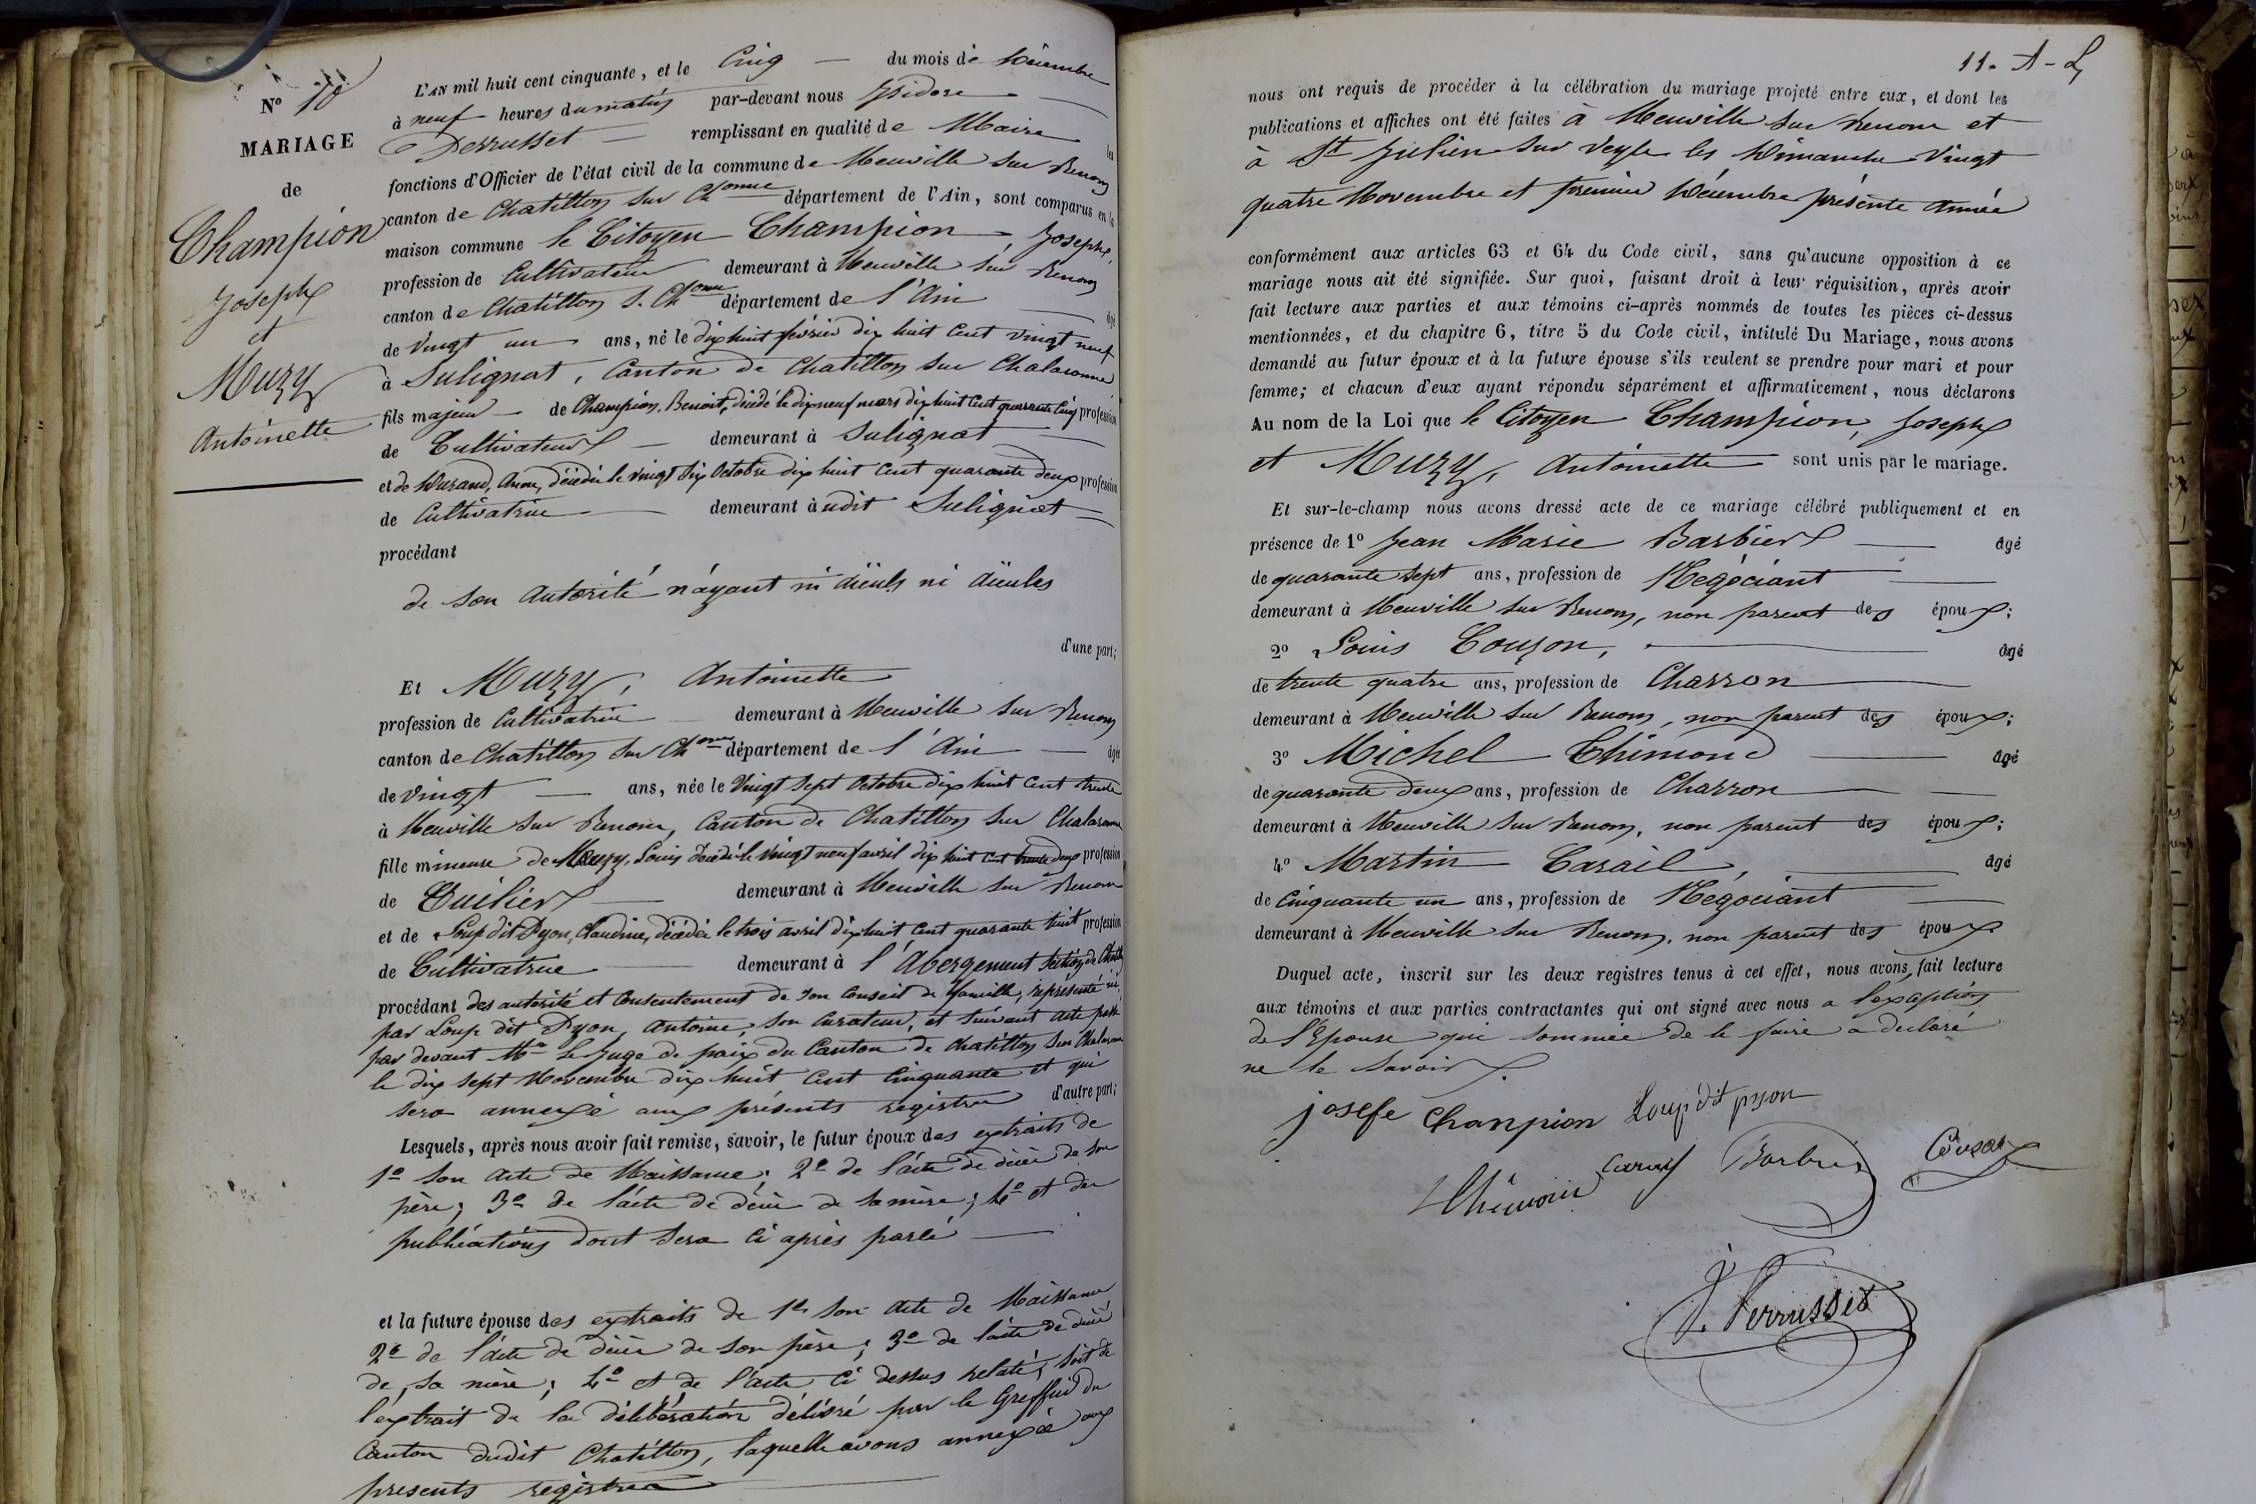 N° 10
MARIAGE
de
Champion
Joseph
et
Muzy
Antoinette
L'AN mil huit cent cinquante, et le Cinq du mois de Décembre
à neuf heures du matin par-devant nous Isidore
Perrusset remplissant en qualité de Maire les
fonctions d'Officier de l'état civil de la commune de Neuville sur Renom
canton de Chatillon sur Ch^onne département de l'Ain, sont comparus en la
maison commune le Citoyen Champion, Joseph,
profession de Cultivateur demeurant à Neuville sur Renom
canton de Chatillon s. Ch^onne département de l'Ain âgé
de Vingt un ans, né le dix huit février dix huit Cent Vingt neuf
à Sulignat, Canton de Chatillon sur Chalaronne
fils majeur de Champion, Benoit, décédé le dix neuf mars dix huit Cent quarante Cinq profession
de Cultivateur demeurant à Sulignat
et de Durand, Anne, décédée le Vingt Six Octobre dix huit Cent quarante deux profession
de Cultivatrice demeurant à udit Sulignat
procédant
de son Autorité n'ayant ni aïeuls ni aïeules
d'une part;
Et Muzy, Antoinette
profession de Cultivatrice demeurant à Neuville sur Renom
canton de Chatillon sur Ch^onne département de l'Ain âgée
de Vingt ans, née le Vingt Sept Octobre dix huit Cent trente
à Neuville sur Renom, Canton de Chatillon sur Chalaronne
fille mineure de Muzy, Louis décédé le Vingt neuf avril dix huit Cent trente deux profession
de Tuilier demeurant à Neuville sur Renom
et de Loup dit Pyon, Claudine, décédée le trois avril dix huit Cent quarante huit profession
de Cultivatrice demeurant à l'Abergement Section de Chatillon
procédant des autorité et Consentement de son Conseil de famille, représenté ici
par Loup dit Pyon, Antoine, son Curateur, et suivant acte passé
par devant Mr Le Juge de paix du Canton de Chatillon sur Chalaronne
le dix sept Novembre dix huit Cent Cinquante et qui
sera annexé aux présents registres d'autre part;
Lesquels, après nous avoir fait remise, savoir, le futur époux des extraits de
1° son Acte de Naissance; 2° de l'acte de décès de son
père; 3° de l'acte de décès de sa mère; 4° et des
publications dont sera ci après parlé
et la future épouse des extraits de 1° son Acte de Naissance
2° de l'acte de décès de son père; 3° de l'acte de décès
de sa mère; 4° et de l'acte ci dessus relaté, soit de
l'extrait de la délibération délivré par le Greffier du
Canton dudit Chatillon, laquelle avons annexée aux
présents registres
11. A-L
nous ont requis de procéder à la célébration du mariage projeté entre eux, et dont les
publications et affiches ont été faites à Neuville sur Renom et
à St Julien sur Veyle les Dimanche Vingt
quatre Novembre et premier Décembre présente Année
conformément aux articles 63 et 64 du Code civil, sans qu'aucune opposition à ce
mariage nous ait été signifiée. Sur quoi, faisant droit à leur réquisition, après avoir
fait lecture aux parties et aux témoins ci-après nommés de toutes les pièces ci-dessus
mentionnées, et du chapitre 6, titre 5 du Code civil, intitulé Du Mariage, nous avons
demandé au futur époux et à la future épouse s'ils veulent se prendre pour mari et pour
femme; et chacun d'eux ayant répondu séparément et affirmativement, nous déclarons
Au nom de la Loi que le Citoyen Champion, Joseph
et Muzy, Antoinette sont unis par le mariage.
Et sur-le-champ nous avons dressé acte de ce mariage célébré publiquement et en
présence de 1° Jean Marie Barbier âgé
de quarante sept ans, profession de Négociant
demeurant à Neuville sur Renom, non parent des époux;
2° Louis Couzon, âgé
de trente quatre ans, profession de Charron
demeurant à Neuville sur Renom, non parent des époux;
3° Michel Thimond âgé
de quarante deux ans, profession de Charron
demeurant à Neuville sur Renom, non parent des époux;
4° Martin Carail, âgé
de Cinquante un ans, profession de Négociant
demeurant à Neuville sur Renom, non parent des époux
Duquel acte, inscrit sur les deux registres tenus à cet effet, nous avons fait lecture
aux témoins et aux parties contractantes qui ont signé avec nous a l'exception
de l'Epouse qui sommée de le faire a déclaré
ne le savoir.
josefe Chanpion Loup dit pyon
Thimon Barbier Couson
I. Perrusset